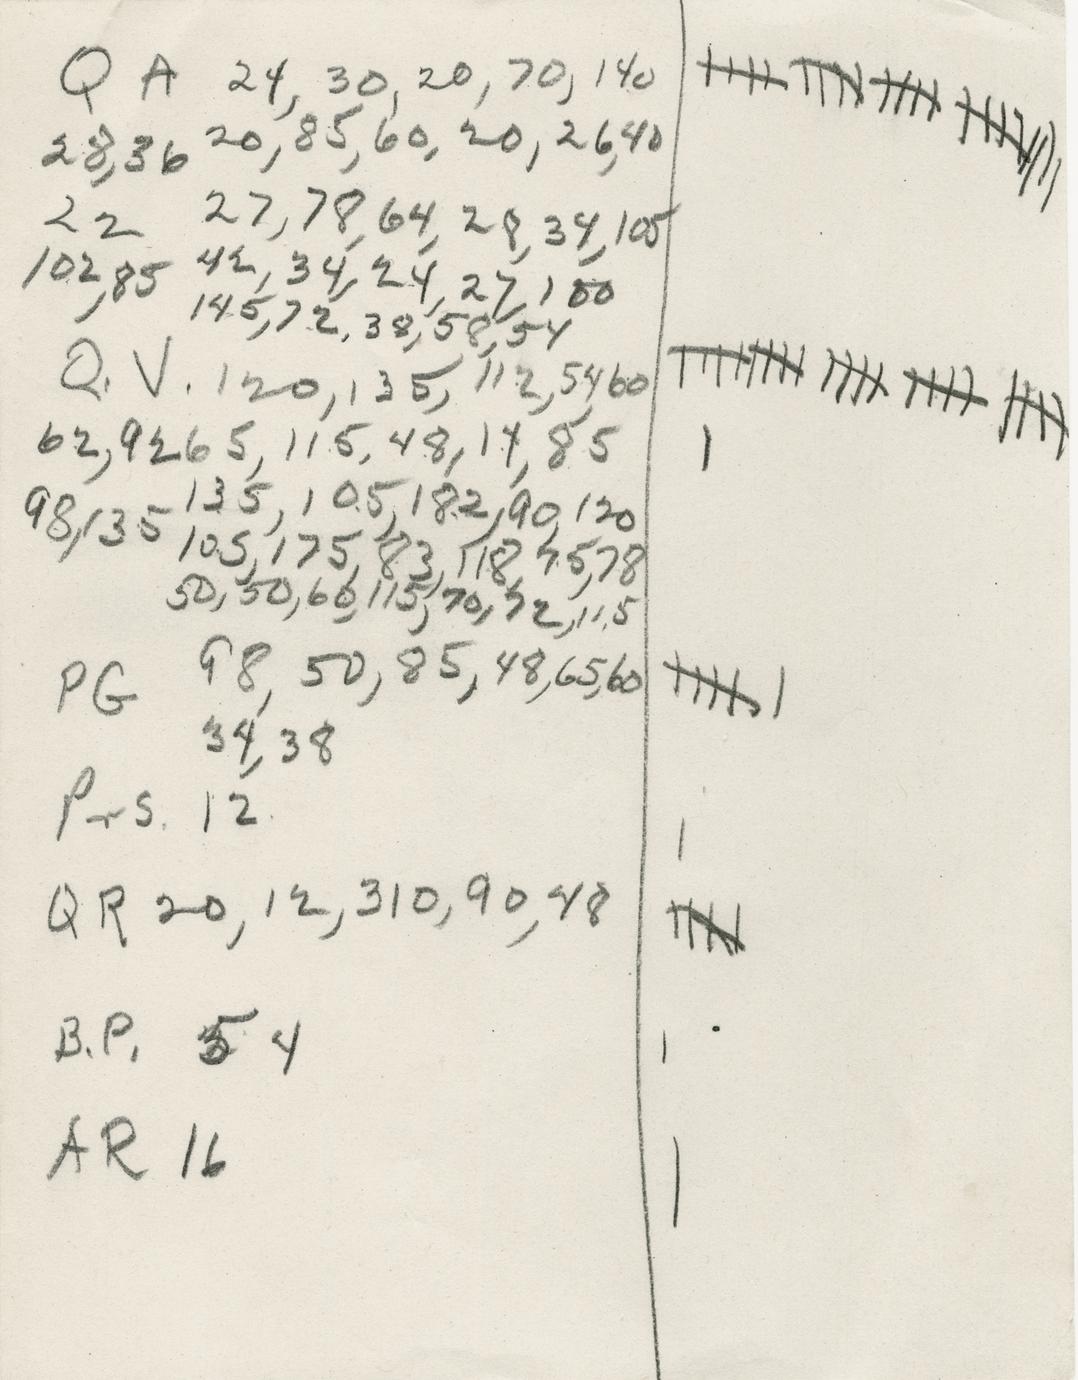 Q A 24, 30, 20, 70, 140
28, 36 20, 85, 60, 20, 26, 40
22 27, 78, 64, 28, 34, 105
102, 85 42, 34, 24, 27, 100
145, 72, 38, 58, 54
Q. V. 120, 135, 112, 54, 60
62, 92 65, 115, 48, 14, 85
98, 135 135, 105, 182, 90, 120
105, 175, 83, 118, 75, 78
50, 50, 60, 115, 70, 72, 115
PG 98, 50, 85, 48, 65, 60
34, 38
Prs. 12
QR 20, 12, 310, 90, 48
B.P. 54
AR 16